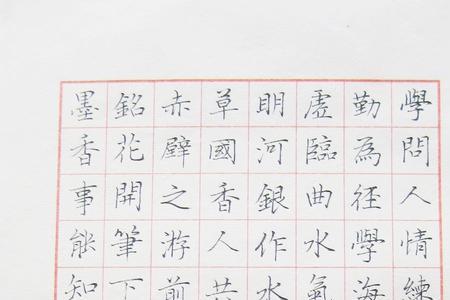 學問人情練
勤為径學海
虛臨曲水氣
明河銀作水
草國香人共
赤壁之游前
銘花開筆下
墨香事能知